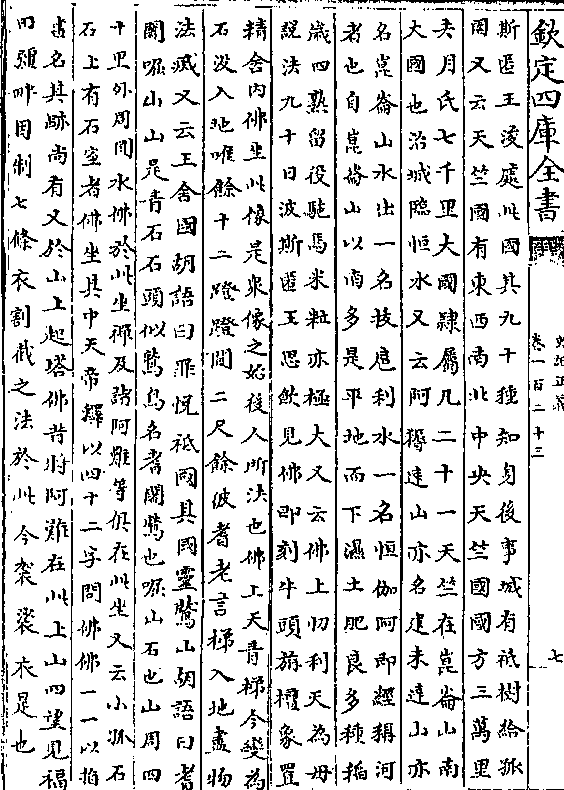 欽定四庫全書
史記正義
卷一百二十三
七
斯匿王浚處此國其九十種知身後事城有祇樹給孤
園又云天竺國有東西南北中央天竺國國方三萬里
去月氏七千里大國隷屬凡二十一天竺在崑崙山南
大國也治城臨恒水又云阿耨達山亦名建末達山亦
名崑崙山水出一名扷扈利水一名恒伽阿即經稱河
者也自崑崙山以南多是平地而下濕土肥良多種稻
歲四熟留役駞馬米粒亦極大又云佛上忉利天為母
說法九十日波斯匿王思欲見佛即刻牛頭旃檀象置
精舍內佛坐此像是衆像之始後人所法也佛上天青梯今變為
石沒入地唯餘十二蹬蹬間二尺餘彼耆老言梯入地盡物
法滅又云王舍國胡語曰罪恱祗國其國靈鷲山胡語曰耆
闍崛山山是青石石頭似鷲鳥名耆闍鷲也崛山石也山周四
十里外周圍水佛於此坐禪及諸阿難等俱在此坐又云小孤石
石上有石室者佛坐其中天帝釋以四十二字問佛佛一一以指
畫名其跡尚有又於山上起塔佛昔將阿難在此上山四望見福
田疆畔因制七條衣割截之法於此今袈裟衣是也